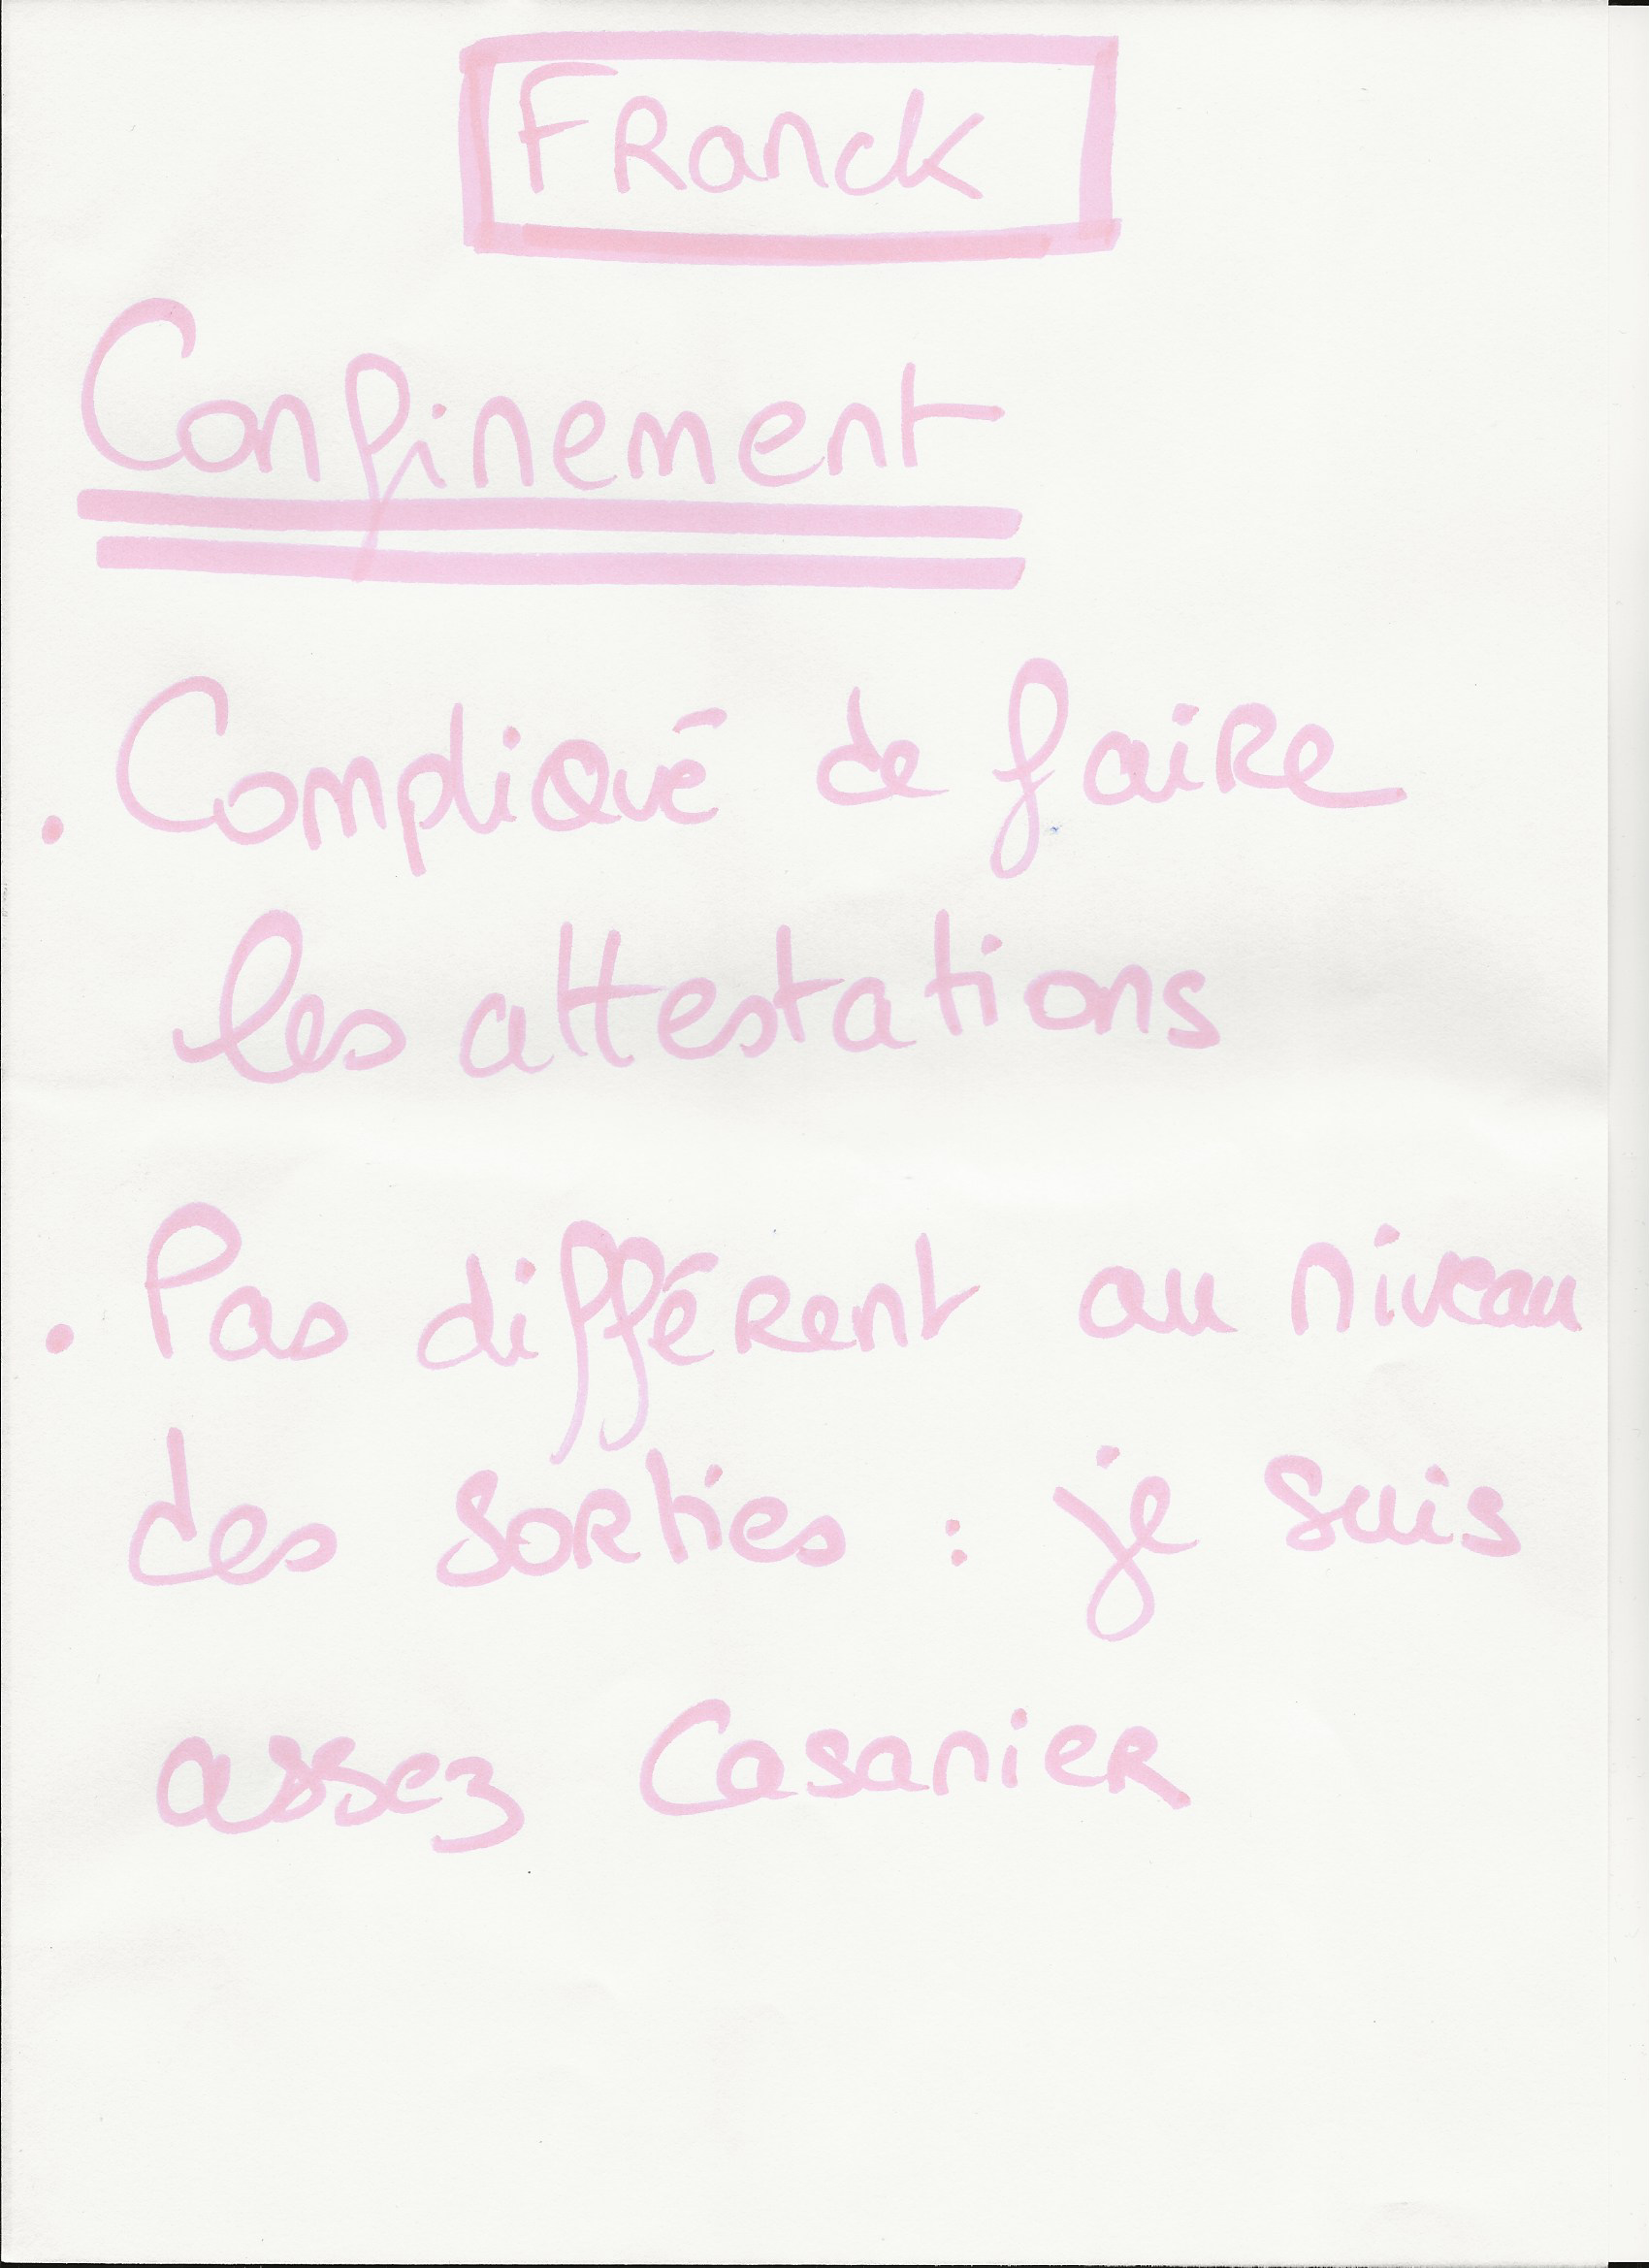 Franck
Confinement
. Compliqué de faire
les attestations
. Pas différent au niveau
des sorties : je suis
assez Casanier